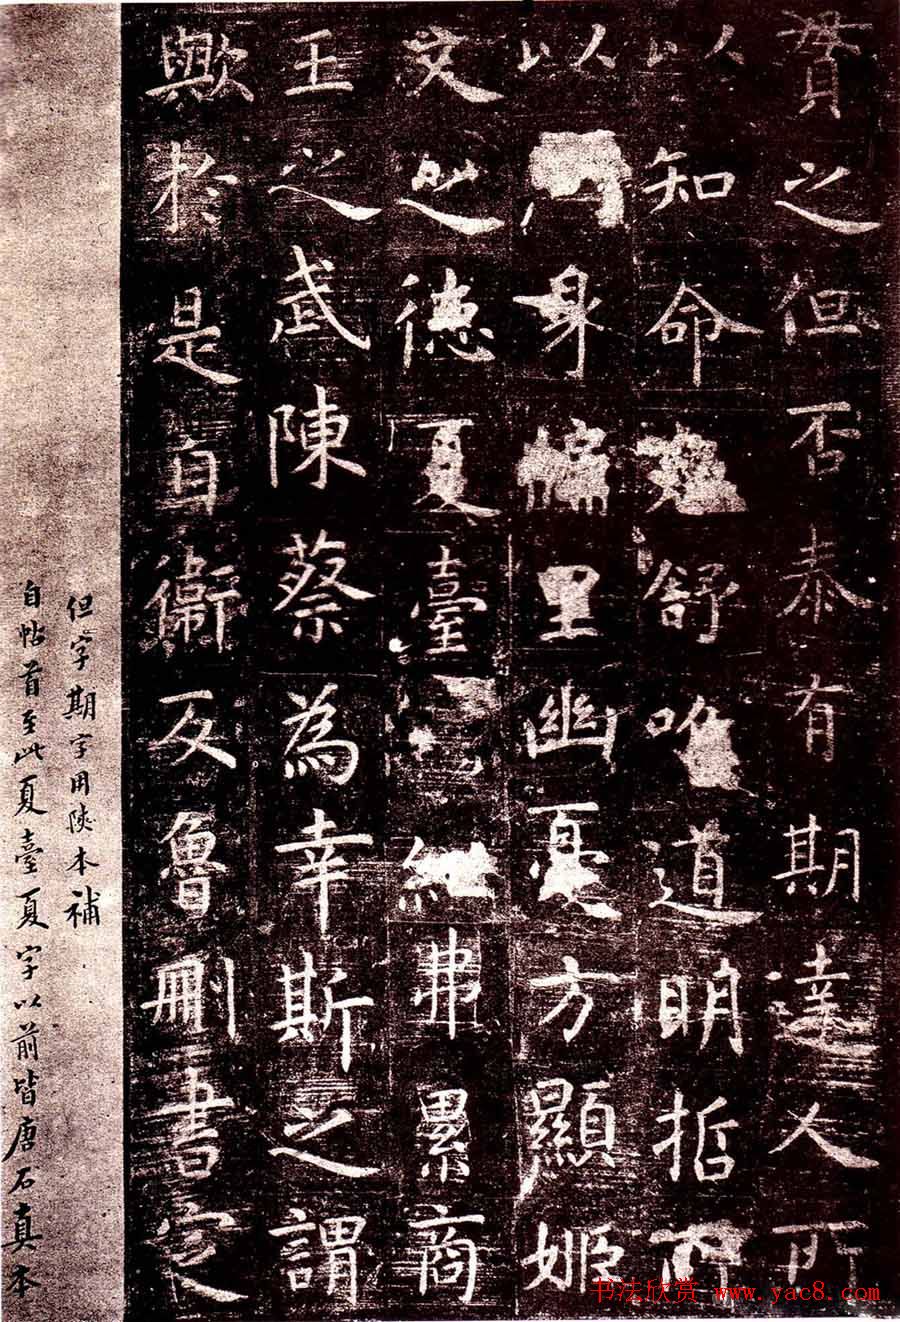 贊之但否泰有期達人所
以知命卷舒唯道明哲所
以身牖里幽憂方顯姬
文之德夏臺紲弗累商
王之武陳蔡為幸斯之謂
歟於是自衛反魯刪書定
但字期字用陝本補
自帖首至此夏臺夏字以前皆唐石真本
书法欣赏 www.yac8.com